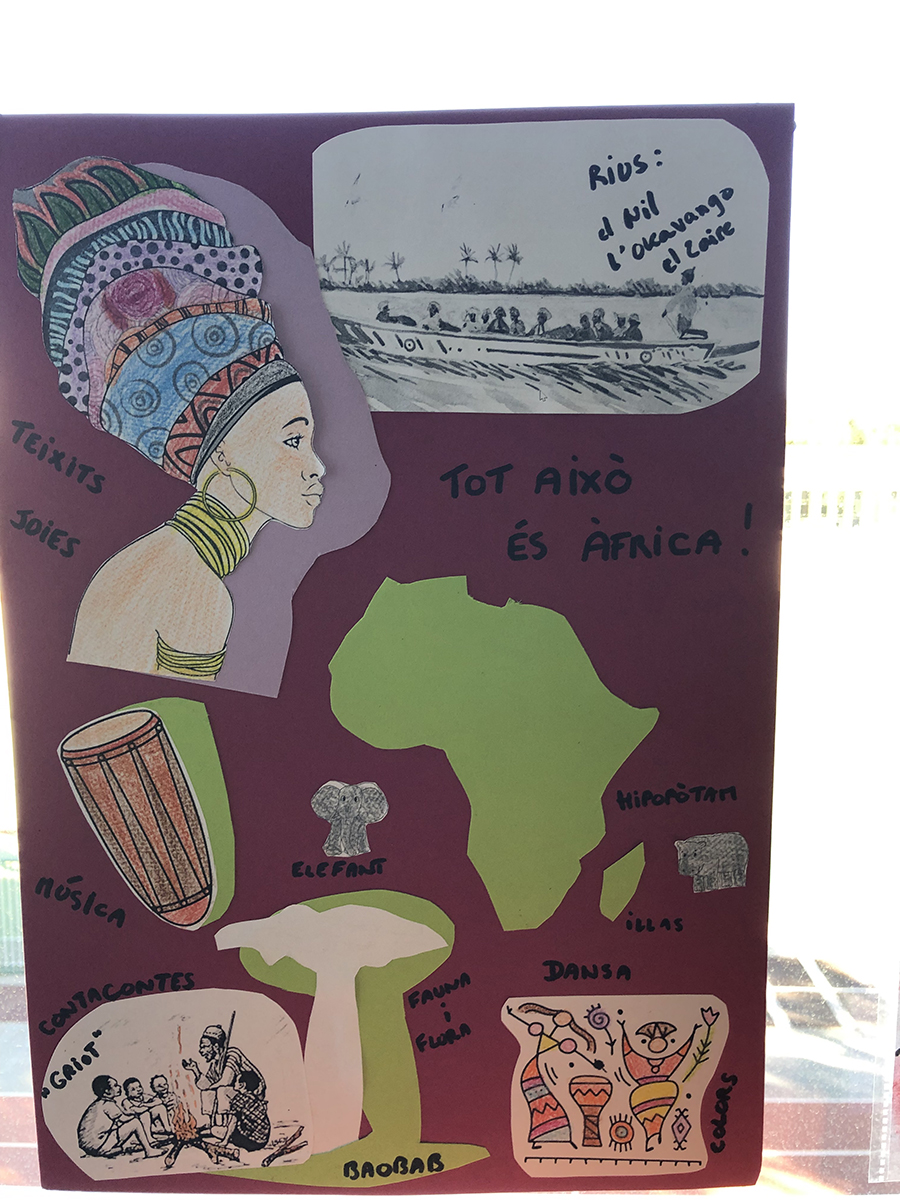 Rius:
el Nil
l'Okavango
el Zaire
TEIXITS
JOIES
TOT AIXÒ
ÉS ÀFRICA!
HIPOPÒTAM
ELEFANT
MÚSICA
ILLAS
DANSA
CONTACONTES
"GRIOT"
FAUNA
i
FLORA
COLORS
BAOBAB